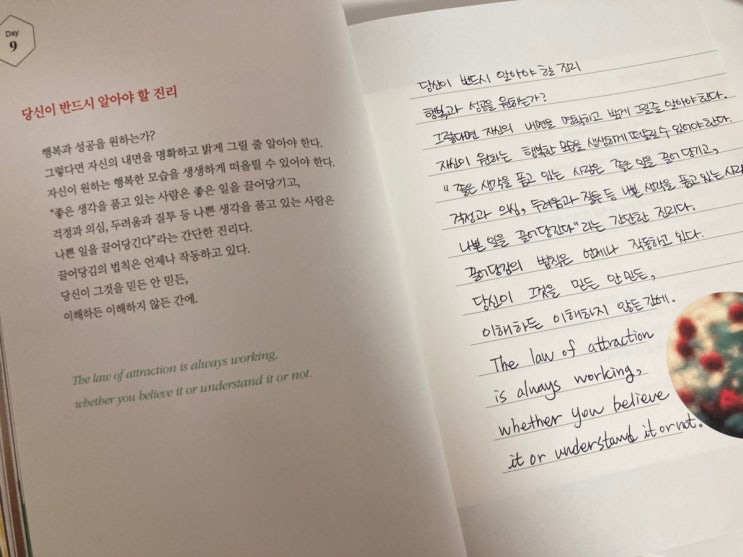 Day
9
당신이 반드시 알아야 할 진리
행복과 성공을 원하는가?
그렇다면 자신의 내면을 명확하고 밝게 그릴 줄 알아야 한다.
자신이 원하는 행복한 모습을 생생하게 떠올릴 수 있어야 한다.
“좋은 생각을 품고 있는 사람은 좋은 일을 끌어당기고,
걱정과 의심, 두려움과 질투 등 나쁜 생각을 품고 있는 사람은
나쁜 일을 끌어당긴다”라는 간단한 진리다.
끌어당김의 법칙은 언제나 작동하고 있다.
당신이 그것을 믿든 안 믿든,
이해하든 이해하지 않든 간에.
The law of attraction is always working,
whether you believe it or understand it or not.
당신이 반드시 알아야 할 진리
행복과 성공을 원하는가?
그렇다면 자신의 내면을 명확하고 밝게 그릴줄 알아야한다.
자신이 원하는 행복한 모습을 생생하게 떠올릴 수 있어야한다.
"좋은 생각을 품고 있는 사람은 좋은 일을 끌어당기고,
걱정과 의심, 두려움과 질투 등 나쁜 생각을 품고 있는 사람
나쁜 일을 끌어당긴다"라는 간단한 진리다.
끌어당김의 법칙은 언제나 작동하고 있다.
당신이 그것을 믿든 안 믿든,
이해하든 이해하지 않든간에.
The law of attraction
is always working,
whether you believe
it or understand it or not.